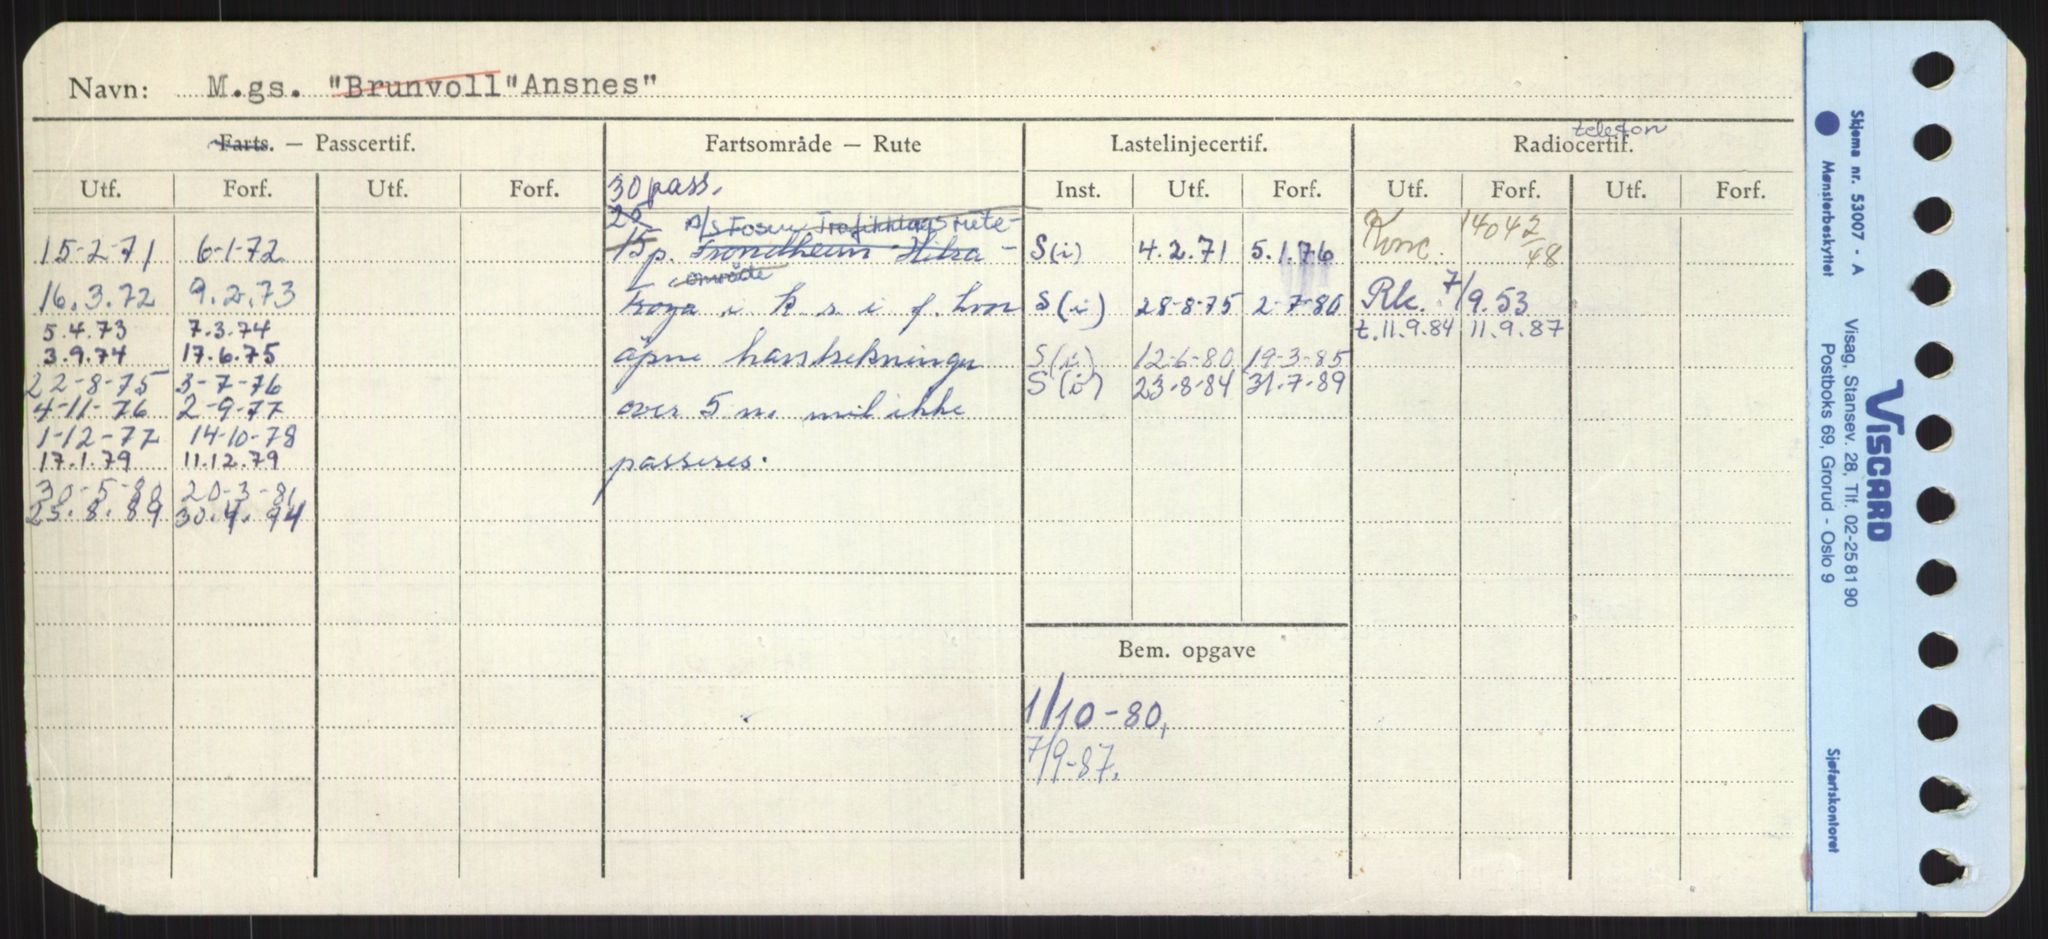 Navn: M.gs. "Brunvoll" "Ansnes"
Farts. — Passcertif. Fartsområde — Rute Lastelinjecertif. Radiocertif. telefon
Utf. Forf. Utf. Forf. Inst. Utf. Forf. Utf. Forf. Utf. Forf.
30 pass.
25 A/S Fosen Trafikklags rute-
15 p. Trondheim Hitra -
område
i k s i f. hvor
åpne havstrekninger
over 5 n. mil ikke
passeres.
15-2-71 6-1-72
16.3.72 9.2.73
5.4.73 7.3.74
3.9.74 17.6.75
22-8-75 3-7-76
4-11-76 2-9-77
1-12-77 14-10-78
17.1.79 11.12.79
30-5-80 20-3-81
23.8.89 30.4.94
S(i) 4.2.71 5.1.76
S(i) 28-8-75 2-7-80
S(i) 12-6-80 19-3-85
S(i) 23-8-84 31.7-89
Konc. 14042/48
Rk. 7/9.53
t. 11.9.84 11.9.87
Bem. opgave
1/10-80,
7/9-87.
Skjema nr. 53007 - A Mønsterbeskyttet
VISCARD
Visag, Stansev. 28, Tlf. 02-25 81 90
Postboks 69, Grorud - Oslo 9
Sjøfartskontoret